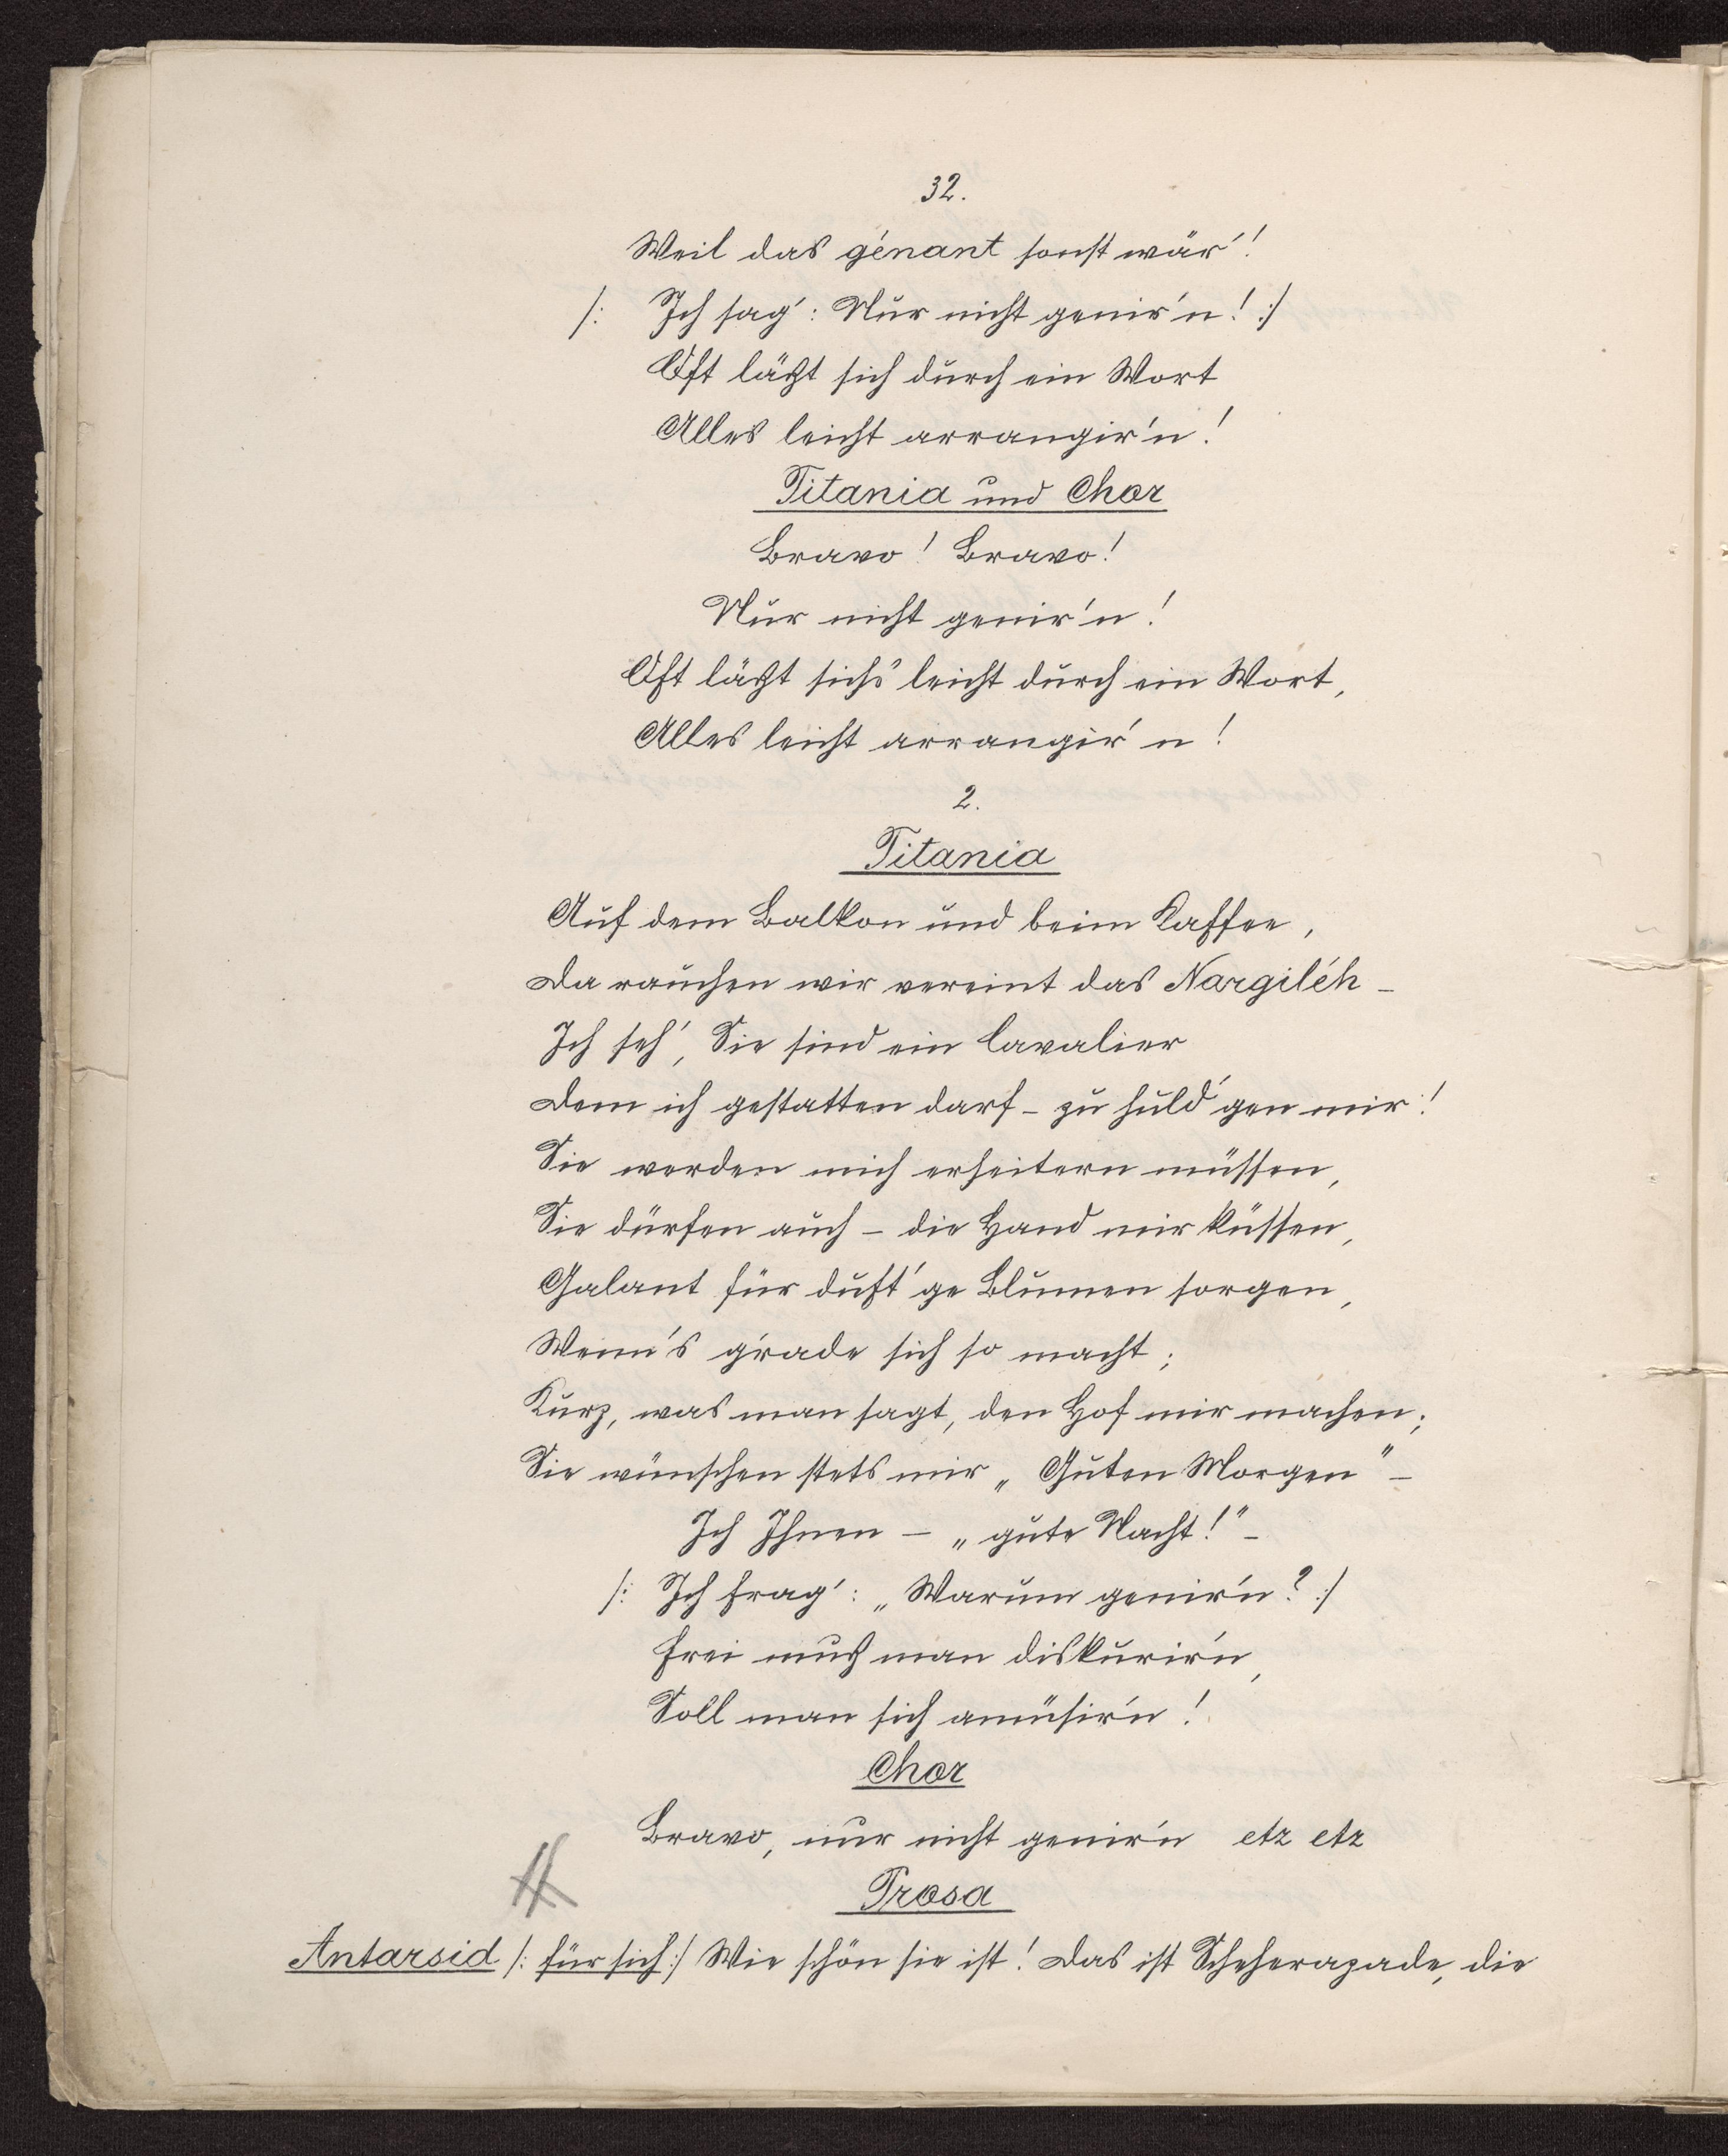 32.
Weil das génant sonst wär'!
/: Ich sag': Nur nicht genir'n! :/
Oft läßt sich durch ein Wort
Alles leicht arrangir'n!
Titania und Chor
Bravo! Bravo!
Nur nicht genir'n!
Oft läßt sich's leicht durch ein Wort,
Alles leicht arrangir'n!
2.
Titania
Auf dem Balkon und beim Kaffee,
Da rauchen wir vereint das Nargiléh –
Ich seh', Sie sind ein Cavalier
Dem ich gestatten darf – zu huld'gen mir!
Sie werden mich erheitern müssen,
Sie dürfen auch – die Hand mir küssen,
Galant für duft'ge Blumen sorgen,
Wenn's g'rade sich so macht;
Kurz, was man sagt, den Hof mir machen;
Sie wünschen stets mir „Guten Morgen" –
Ich Ihnen – „gute Nacht!" –
/: Ich frag': „Warum genir'n? :/
Frei muß man diskurir'n,
Soll man sich amüsir'n!
Chor
Bravo, nur nicht genir'n etz etz
Prosa
Antarsid /: für sich :/ Wie schön sie ist! Das ist Scheherazade, die